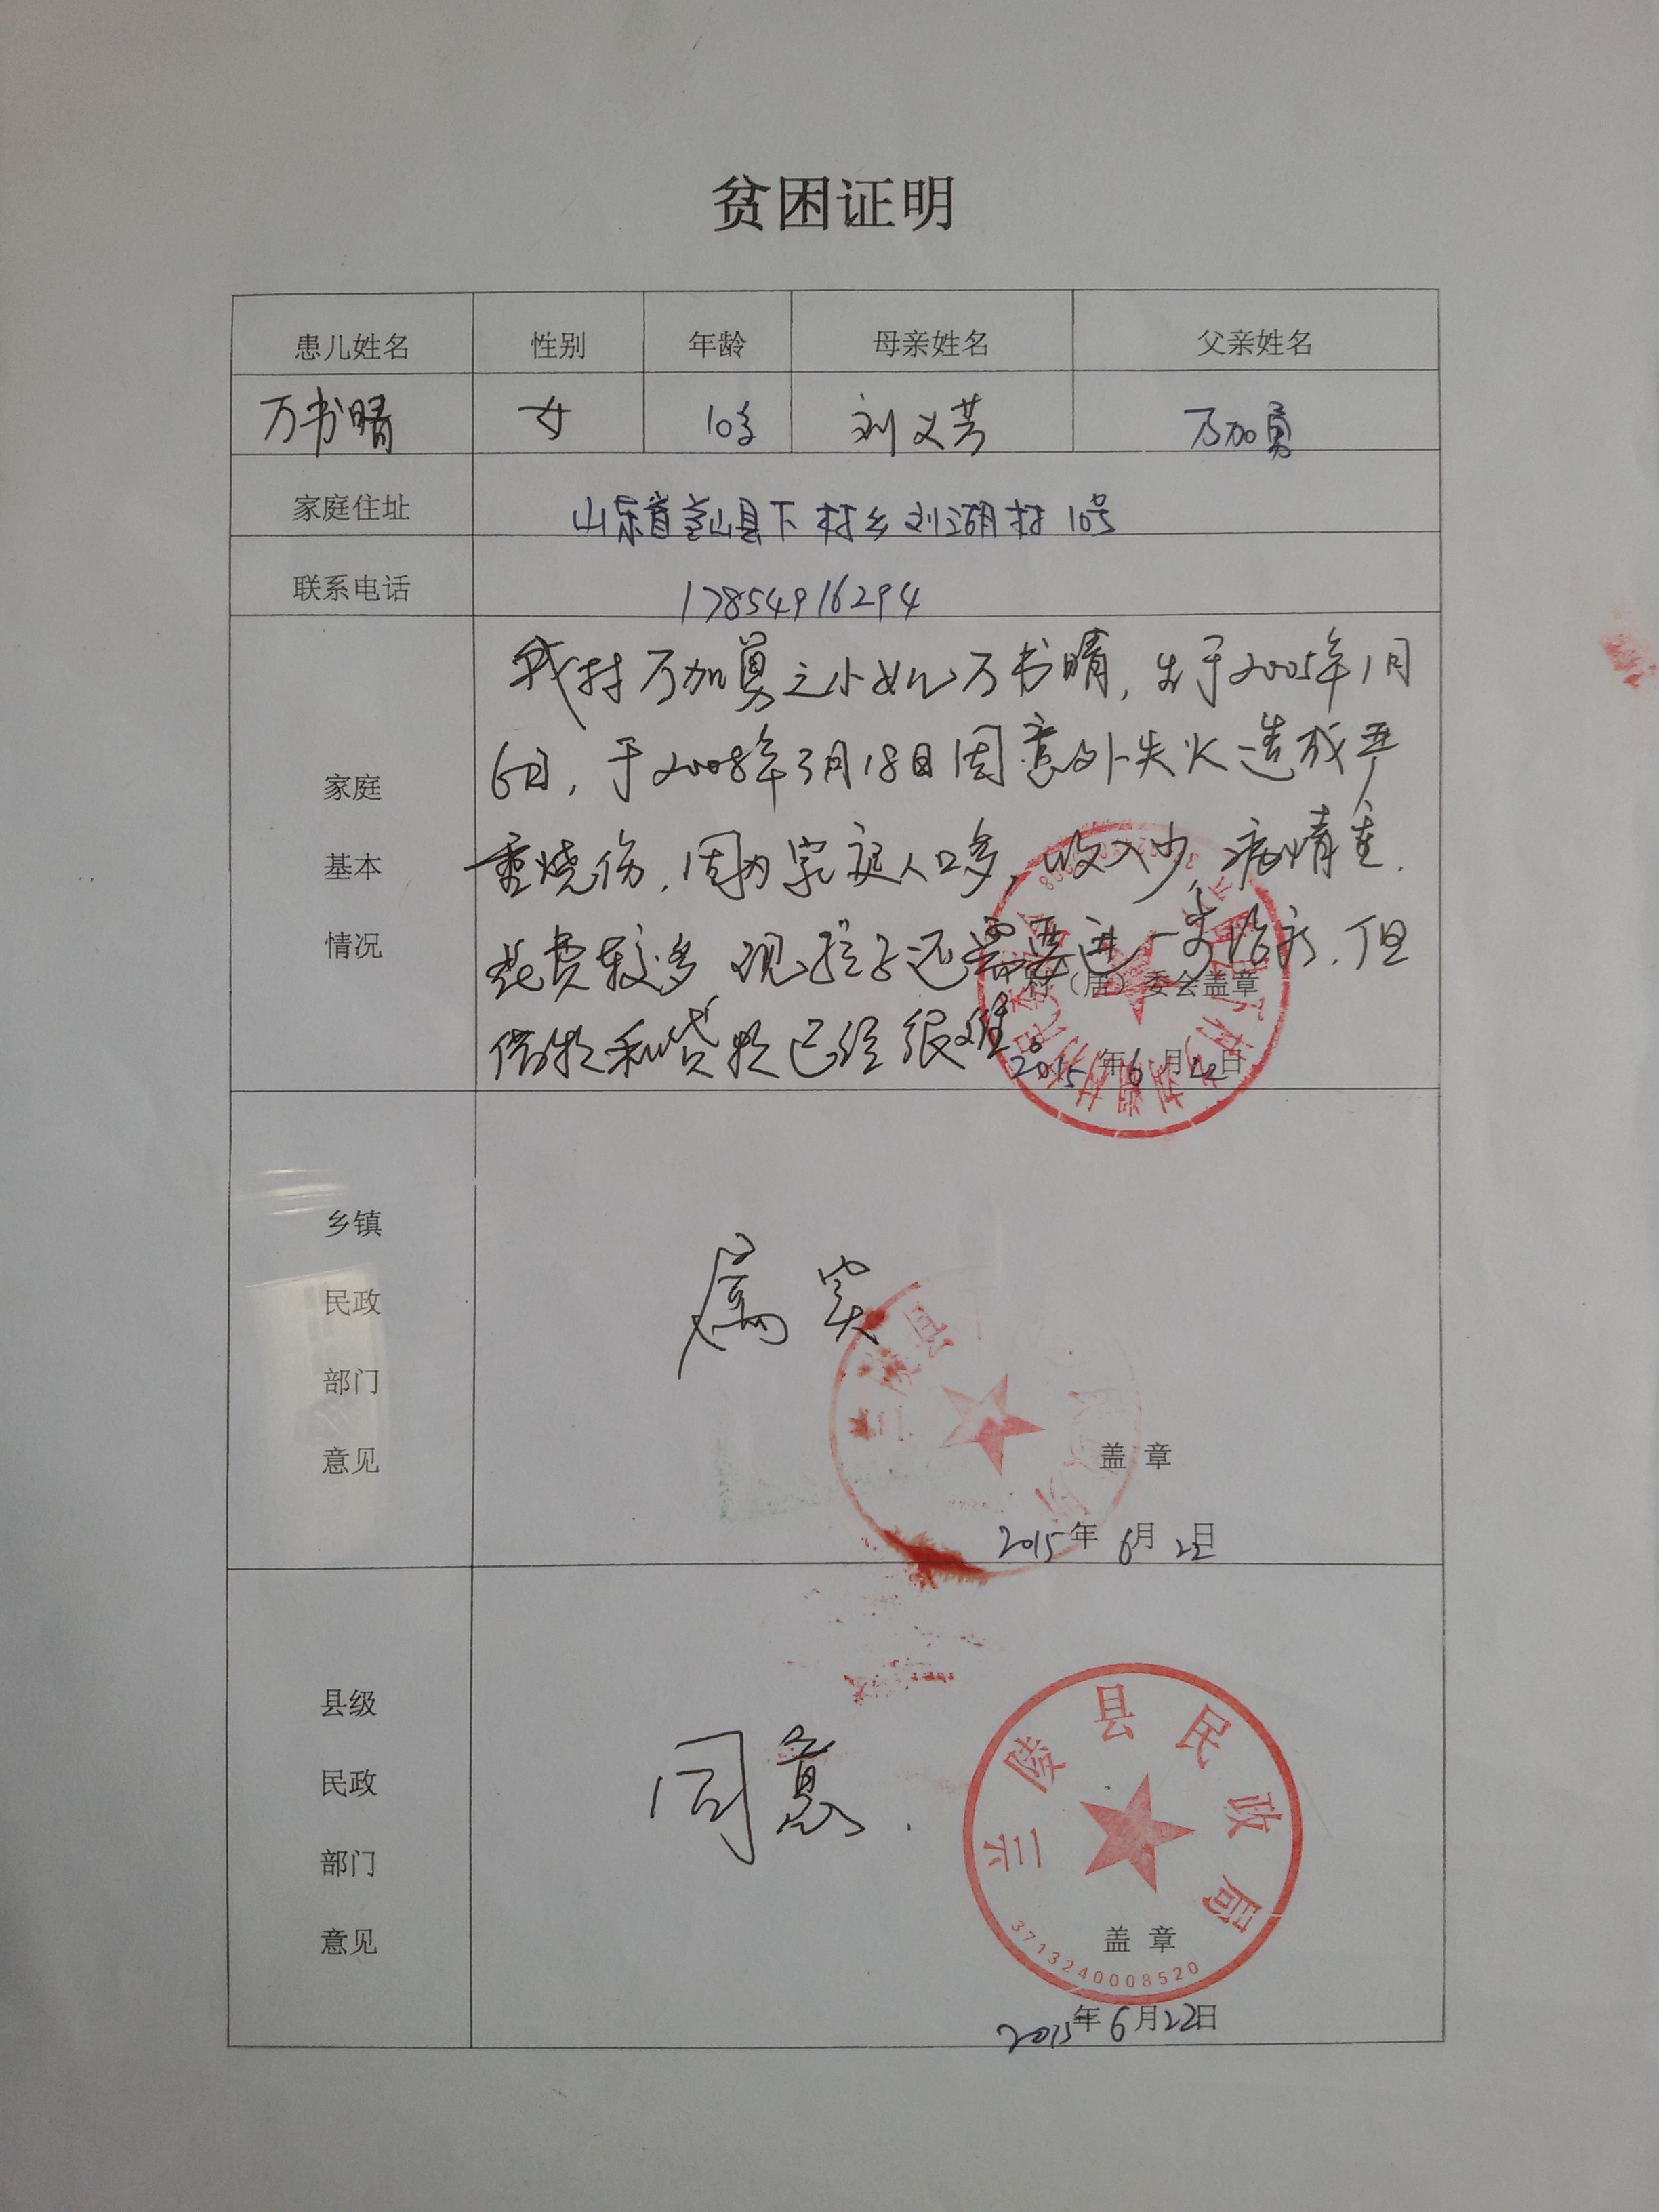 贫困证明
患儿姓名 性别 年龄 母亲姓名 父亲姓名
万书晴 女 10岁 刘义芳 万加勇
家庭住址 山东省苍山县下村乡刘湖村10号
联系电话 17854916294
家庭
基本
情况
我村万加勇之小女儿万书晴,生于2005年1月
6日,于2008年3月18日因意外失火造成严
重烧伤.因为家庭人口多,收入少,病情重.
花费较多 现孩子还需要进一步治疗.但
借款和贷款已经很难。
村(居)委会盖章
2015年6月22日
乡镇
民政
部门
意见
属实
兰陵县
盖 章
2015年6月22日
县级
民政
部门
意见
同意.
兰陵县民政局
盖 章
3713240008520
2015年6月22日